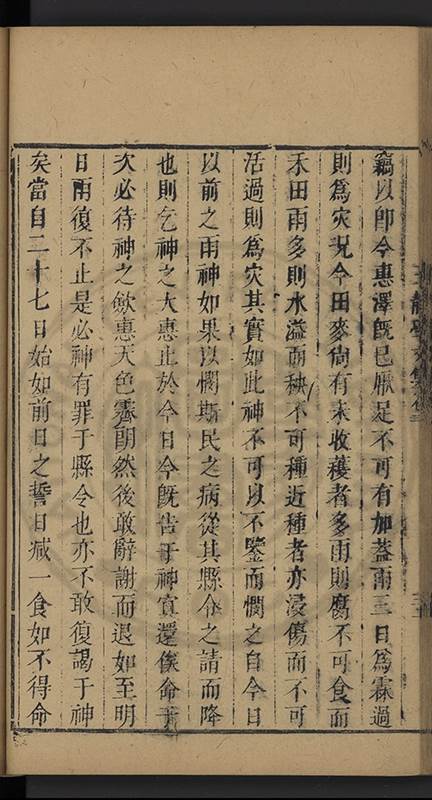 竊以卽今惠澤旣已厭足不可有加蓋雨三日為霖過
則為灾況今田麥尙有未收穫者多雨則腐不可食而
禾田雨多則水溢而秧不可種近種者亦浸傷而不可
活過則為灾其實如此神不可以不鑒而憫之自今日
以前之雨神如果以憫斯民之病從其縣令之請而降
也則乞神之大惠止於今日今旣告于神宜還俟命于
次必待神之斂惠天色霽朗然後敢辭謝而退如至明
日雨復不止是必神有罪于縣令也亦不敢復謁于神
矣當自二十七日始如前日之誓日减一食如不得命